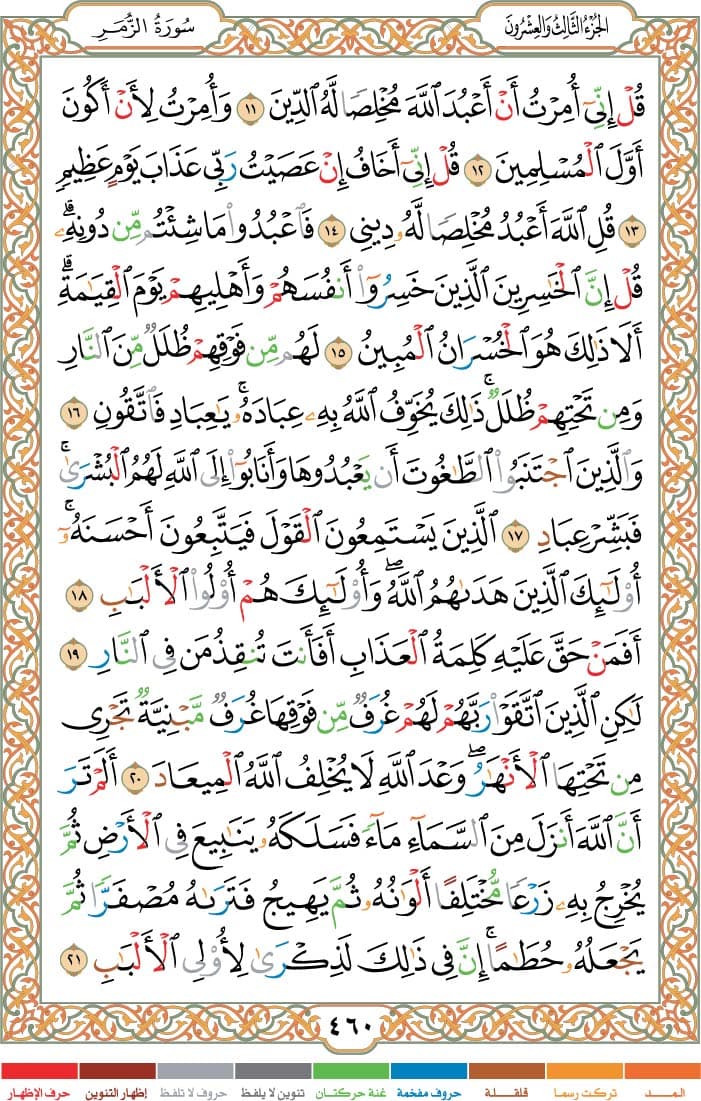 الجُزْءُ الثَّالِثُ وَالعِشْرُونَ
سُورَةُ الزُّمَرِ
قُلْ إِنِّىٓ أُمِرْتُ أَنْ أَعْبُدَ ٱللَّهَ مُخْلِصًا لَّهُ ٱلدِّينَ ١١ وَأُمِرْتُ لِأَنْ أَكُونَ
أَوَّلَ ٱلْمُسْلِمِينَ ١٢ قُلْ إِنِّىٓ أَخَافُ إِنْ عَصَيْتُ رَبِّى عَذَابَ يَوْمٍ عَظِيمٍ
١٣ قُلِ ٱللَّهَ أَعْبُدُ مُخْلِصًا لَّهُۥ دِينِى ١٤ فَٱعْبُدُوا۟ مَا شِئْتُم مِّن دُونِهِۦ ۗ
قُلْ إِنَّ ٱلْخَـٰسِرِينَ ٱلَّذِينَ خَسِرُوٓا۟ أَنفُسَهُمْ وَأَهْلِيهِمْ يَوْمَ ٱلْقِيَـٰمَةِ ۗ
أَلَا ذَٰلِكَ هُوَ ٱلْخُسْرَانُ ٱلْمُبِينُ ١٥ لَهُم مِّن فَوْقِهِمْ ظُلَلٌ مِّنَ ٱلنَّارِ
وَمِن تَحْتِهِمْ ظُلَلٌ ۚ ذَٰلِكَ يُخَوِّفُ ٱللَّهُ بِهِۦ عِبَادَهُۥ ۚ يَـٰعِبَادِ فَٱتَّقُونِ ١٦
وَٱلَّذِينَ ٱجْتَنَبُوا۟ ٱلطَّـٰغُوتَ أَن يَعْبُدُوهَا وَأَنَابُوٓا۟ إِلَى ٱللَّهِ لَهُمُ ٱلْبُشْرَىٰ ۚ
فَبَشِّرْ عِبَادِ ١٧ ٱلَّذِينَ يَسْتَمِعُونَ ٱلْقَوْلَ فَيَتَّبِعُونَ أَحْسَنَهُۥٓ ۚ
أُو۟لَـٰٓئِكَ ٱلَّذِينَ هَدَىٰهُمُ ٱللَّهُ ۖ وَأُو۟لَـٰٓئِكَ هُمْ أُو۟لُوا۟ ٱلْأَلْبَـٰبِ ١٨
أَفَمَنْ حَقَّ عَلَيْهِ كَلِمَةُ ٱلْعَذَابِ أَفَأَنتَ تُنقِذُ مَن فِى ٱلنَّارِ ١٩
لَـٰكِنِ ٱلَّذِينَ ٱتَّقَوْا۟ رَبَّهُمْ لَهُمْ غُرَفٌ مِّن فَوْقِهَا غُرَفٌ مَّبْنِيَّةٌ تَجْرِى
مِن تَحْتِهَا ٱلْأَنْهَـٰرُ ۖ وَعْدَ ٱللَّهِ لَا يُخْلِفُ ٱللَّهُ ٱلْمِيعَادَ ٢٠ أَلَمْ تَرَ
أَنَّ ٱللَّهَ أَنزَلَ مِنَ ٱلسَّمَآءِ مَآءً فَسَلَكَهُۥ يَنَـٰبِيعَ فِى ٱلْأَرْضِ ثُمَّ
يُخْرِجُ بِهِۦ زَرْعًا مُّخْتَلِفًا أَلْوَٰنُهُۥ ثُمَّ يَهِيجُ فَتَرَىٰهُ مُصْفَرًّا ثُمَّ
يَجْعَلُهُۥ حُطَـٰمًا ۚ إِنَّ فِى ذَٰلِكَ لَذِكْرَىٰ لِأُو۟لِى ٱلْأَلْبَـٰبِ ٢١
٤٦٠
المــد تركت رسما قلقلة حروف مفخمة غنة حركتان تنوين لا يلفظ حروف لا تلفظ إظهار التنوين حرف الإظهار